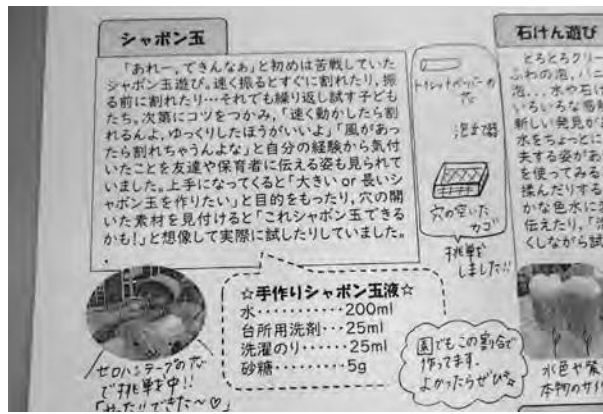 シャボン玉
「あれー、てきんなぁ」と初めは苦戦していた
シャボン玉遊び。速く振るとすぐに割れたり、振
る前に割れたり…それでも繰り返し試す子ども
たち。次第にコツをつかみ、「速く動かしたら割
れるんよ、ゆっくりしたほうがいいよ」「風があっ
たら割れちゃうんよな」と自分の経験から気付
いたことを友達や保育者に伝える姿も見られて
いました。上手になってくると「大きい or 長いシ
ャボン玉を作りたい」と目的をもったり、穴の開
いた素材を見付けると「これシャボン玉できる
かも!」と想像して実際に試したりしていました。
トイレットペーパーの
芯
穴の空いた
カゴ
挑戦を
しました!!
☆手作りシャボン玉液☆
水・・・・・・・・・・・200ml
台所用洗剤・・・25ml
洗濯のり・・・・・・25ml
砂糖・・・・・・・・・・5g
園でもこの割合で
作ってます。
よかったらぜひ☆
セロハンテープの芯
で挑戦中!!
「やった!!できた〜♡」
石けん遊び
とろとろクリー
ふわの泡、バニ
泡...水や石け
いろいろな感触
新しい発見が
水をちょっとに
夫する姿があ
を使ってみる
揉んだりする
かな色水に
伝えたり、「泡
くしながら試
水色や紫
本物の